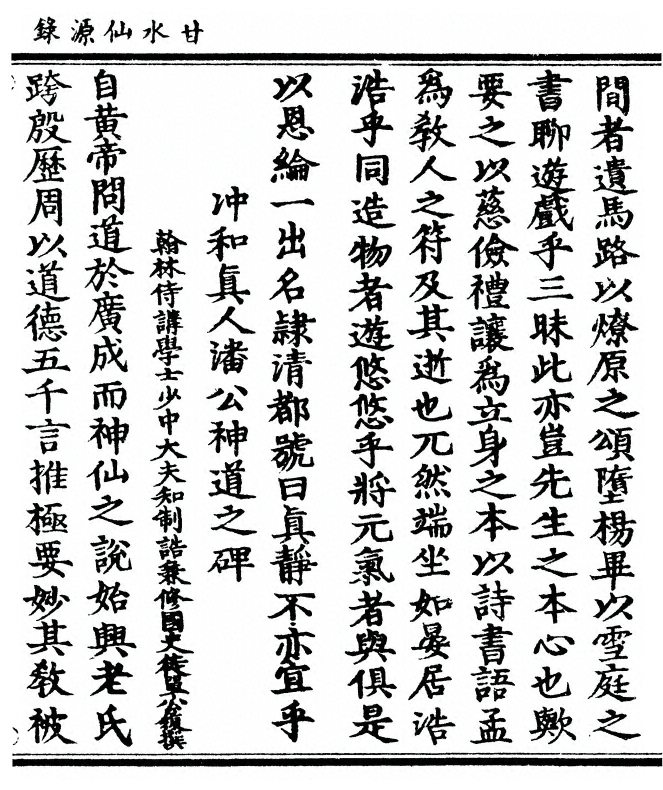 甘水仙源錄
間者遺馬路以燎原之頌墮楊畢以雪庭之
書聊遊戲乎三昧此亦豈先生之本心也歟
要之以慈儉禮讓爲立身之本以詩書語孟
爲教人之符及其逝也兀然端坐如晏居浩
浩乎同造物者遊悠悠乎將元氣者與俱是
以恩綸一出名隷清都號曰眞靜不亦宜乎
冲和眞人潘公神道之碑
翰林侍講學士少中大夫知制誥兼修國史徒單公履撰
自黃帝問道於廣成而神仙之說始興老氏
跨殷歷周以道德五千言推極要妙其教被